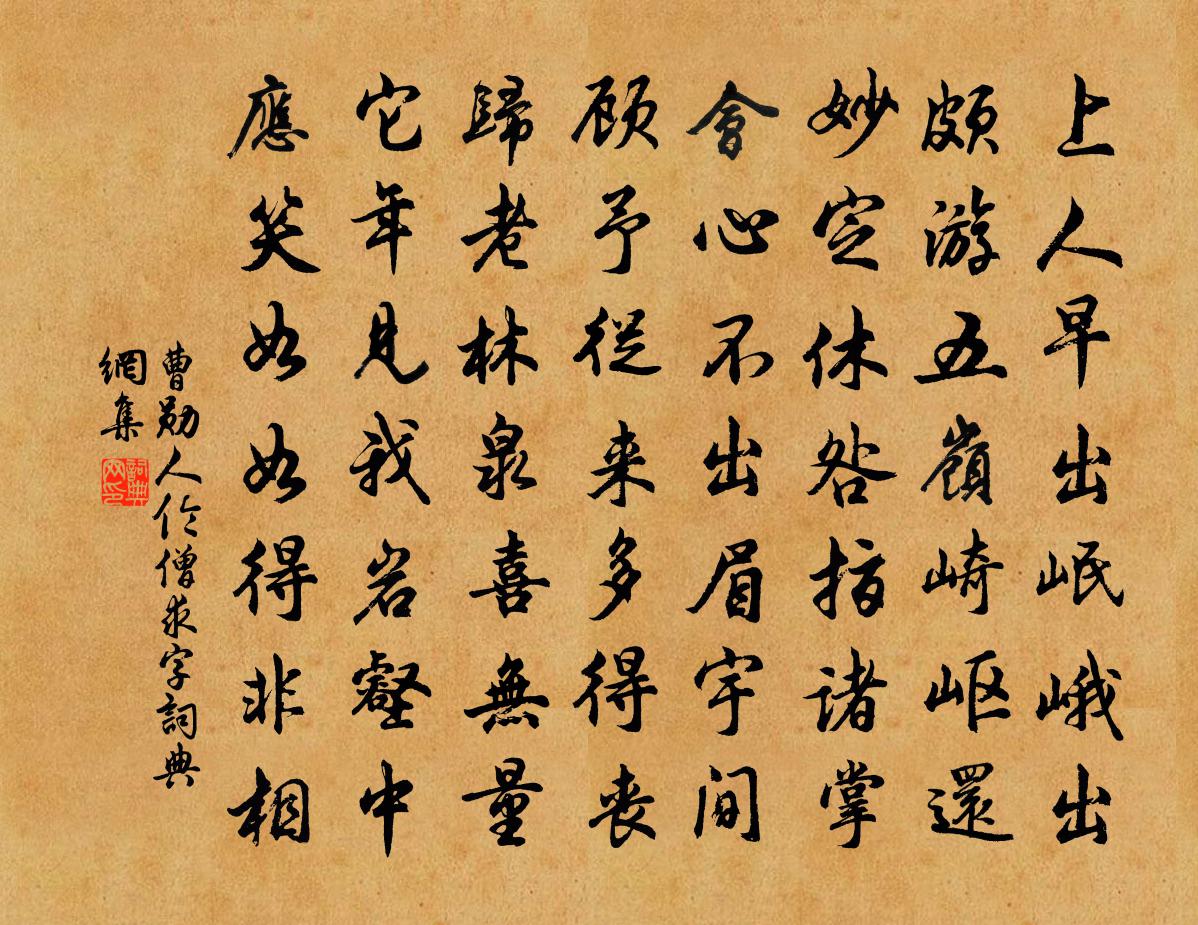 上人早出岷峨出
頗游五嶺崎岖還
妙定休咎指諸掌
會心不出眉宇间
顾予從来多得丧
歸老林泉喜無量
它年見我岩壑中
應笑如如得非相
曹勛人伶僧求字詞典
網集
詞典